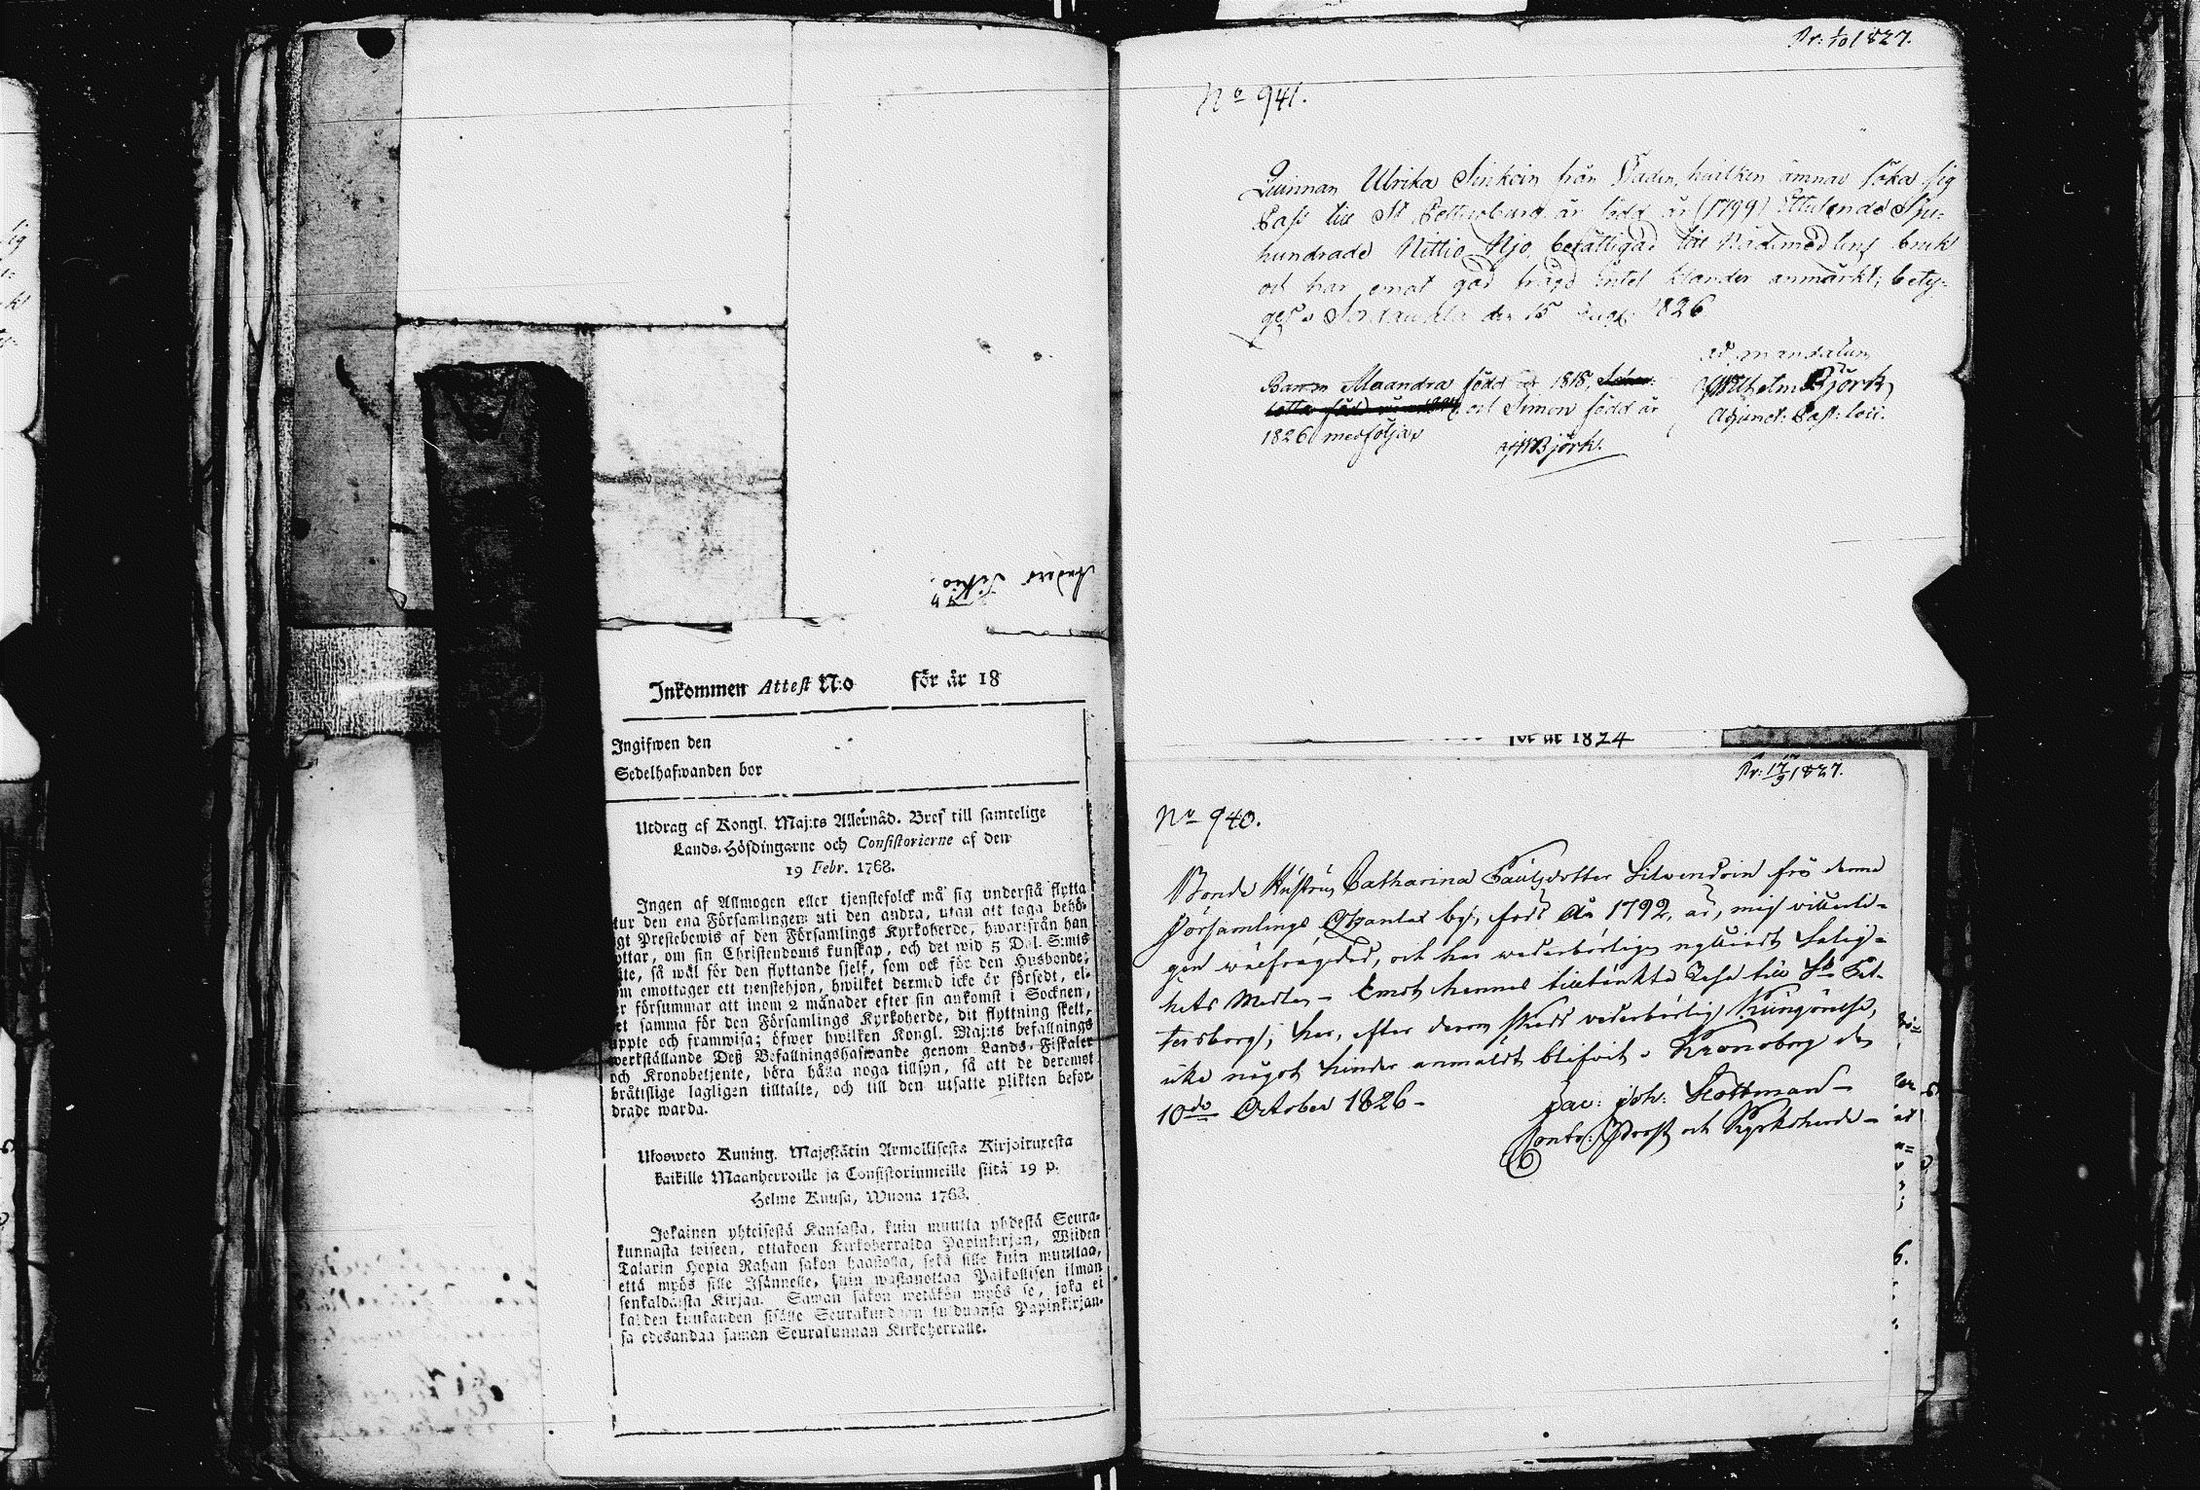 Anders
Inkommen Attest N:o för år 18
Ingifwen den
Sedelhafwanden bor
Utdrag af Kongl. Maj:ts Allernåd. Bref till samtelige
Lands-Höfdingarne och Consistorierne af den
19 Febr. 1768.
Ingen af Allmogen eller tjenstefolck må sig understå flytta
utur den ena Församlingen uti den andra, utan att taga behö-
gt Prestebewis af den Församlings Kyrkoherde, hwarifrån han
yttar, om sin Christendoms kunskap, och det wid 5 Dal. S:mts
ite, så wäl för den flyttande sjelf, som ock för den Husbonde,
m emottager ett tjenstehjon, hwilket dermed icke är försedt, el-
r försummar att inom 2 månader efter sin ankomst i Socknen,
et samma för den Församlings Kyrkoherde, dit flyttning skett,
uppte och framwisa; öfwer hwilken Kongl. Maj:ts befallnings
werkställande Deß Befallningshafwande genom Lands-Fiskaler
och Kronobetjente, böra hålla noga tillsyn, så att de deremot
bråtislige lagligen tilltalte, och till den utsatte plikten befor-
drade warda.
Ulosweto Kuning. Majestätin Armollisesta Kirjoituxesta
kaikille Maanherroille ja Consistoriumeille siitä 19 p.
Helme Kuusa, Wuona 1768.
Jokainen yhteisestä Kansasta, kuin muutta yhdestä Seura-
kunnasta toiseen, ottakoon Kirkoherralda Papinkirjan, Wiiden
Talarin Hopia Rahan sakon haastolla, sekä sille kuin muuttaa,
että myös sille Isännelle, kuin wastanottaa Paikollisen ilman
senkaldaista Kirjaa. Saman sakon wetäkön myös se, joka ei
kahden kuukauden sisälle Seurakundaan tulduansa Papinkirjan-
sa edesandaa saman Seurakunnan Kirkoherralle.
Pr: 1/10 1827.
No 941.
Quinnan Ulrika Sinkoin från Staden, hvilken ämnar söka sig
Pass till St Pettersburg är född år (1799) Ettusende Sju-
hundrade Nittio Njo, berättigad till Nådemedlens bruk
och har emot god frägd intet klander anmärkt; bety-
ges. Sordawala den 15 1826
ad mandatum
Barnen Alexandra född år 1818,
och Simon född år
1826 medföljer
Wilhelm Björk
Adjunct: Past: loci.
Björk.
för år 1824
Pr: 17/9 1827.
No 940.
Bonde Hustrun Catharina Paulsdotter Silvendoin frå denna
Församlings by, född År 1792, är, mig vitterli-
gen wälfrägdad, och har wederbörligen nyttiadt Salig-
hets Medlen – Emot hennes tilltänkta Resa till St Pet-
tersborg, har, efter derom skedd vederbörlig Kungörelse,
icke något hinder anmäldt blifvit. Kronoborg den
10de October 1826 –
Jac: Joh: Hoffman –
Contr: Prost och Kyrkoherde –